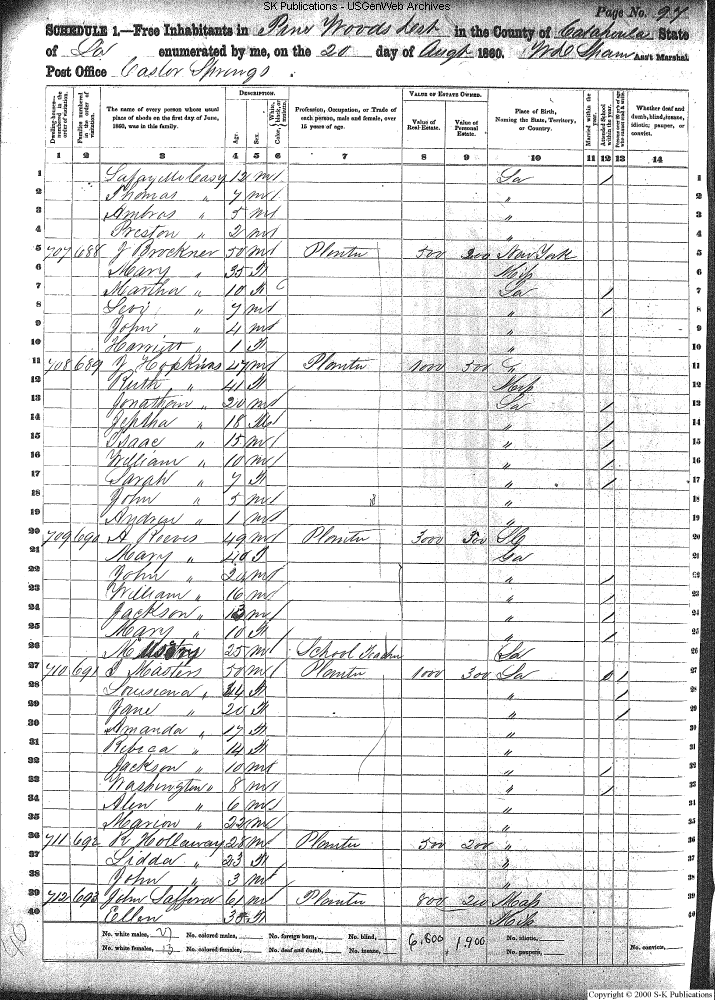 SK Publications - USGenWeb Archives
Page No. 97
SCHEDULE 1.—Free Inhabitants in Pine Woods Dist in the County of Catahoula State
of La enumerated by me, on the 20 day of Augt 1860. Ass't Marshal.
Post Office Castor Springs.
Dwelling-houses—numbered in the order of visitation.
Families numbered in the order of visitation.
The name of every person whose usual place of abode on the first day of June, 1860, was in this family.
DESCRIPTION.
Age.
Sex.
Color, White, black, or mulatto.
Profession, Occupation, or Trade of each person, male and female, over 15 years of age.
VALUE OF ESTATE OWNED.
Value of Real Estate.
Value of Personal Estate.
Place of Birth, Naming the State, Territory, or Country.
Married within the year.
Attended School within the year.
Persons over 20 y'rs of age who cannot read & write.
Whether deaf and dumb, blind, insane, idiotic, pauper, or convict.
1 2 3 4 5 6 7 8 9 10 11 12 13 14
1 Casy 12 m La / 1
2 Thomas " 7 m " 2
3 Ambros " 5 m " 3
4 Preston " 2 m " 4
5 707 688 J Brockner 50 m Planter 500 200 New York 5
6 Mary " 35 f Mip 6
7 Martha " 10 f La / 7
8 Levi " 7 m " / 8
9 John " 4 m " 9
10 Harriett " 1 f " 10
11 708 689 Hopkins 47 m Planter 1000 500 " 11
12 Ruth " 41 f Mip 12
13 Jonathan " 20 m La / 13
14 Jeptha " 18 m " / 14
15 Isaac " 15 m " / 15
16 William " 10 m " / 16
17 Sarah " 7 f " / 17
18 John " 5 m " 18
19 Andrew " 1 m " 19
20 709 690 A Reeves 49 m Planter 3000 500 20
21 Mary " 40 f Ga 21
22 John " 20 m " 22
23 William " 16 m " / 23
24 Jackson " 13 m " / 24
25 Mary " 10 f " / 25
26 25 m School Teacher La 26
27 710 691 Masters 50 m Planter 1000 300 La / 27
28 Louisiana " 44 f " / 28
29 Jane " 20 f " / 29
30 Amanda " 17 f " 30
31 Rebeca " 14 f " 31
32 Jackson " 10 m " / 32
33 Washington " 8 m " / 33
34 Alen " 6 m " 34
35 Marion " 22 m " 35
36 711 692 R Hollaway 28 m Planter 500 200 " 36
37 Lidda " 23 f " 37
38 John " 3 m " 38
39 712 693 John Safford 61 m Planter 800 200 Mass 39
40 Ellen 38 f Mip 40
No. white males, 27 No. colored males, No. foreign born, No. blind, 6,800 1,900 No. idiotic,
No. white females, 13 No. colored females, No. deaf and dumb, No. insane, No. paupers, No. convicts,
40
Copyright © 2000 S-K Publications